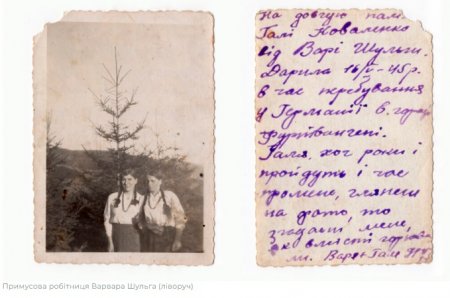 На довгую пам.
Галі Коваленко
від Варі Шульги.
Дарила 16/V-45 р.
в час перебування
у Германії в
Галя, хоч роки і
пройдуть і час
промине, глянеш
на фото, то
згадаєш мене,
як вмісті
Варя Галя
Примусова робітниця Варвара Шульга (ліворуч)